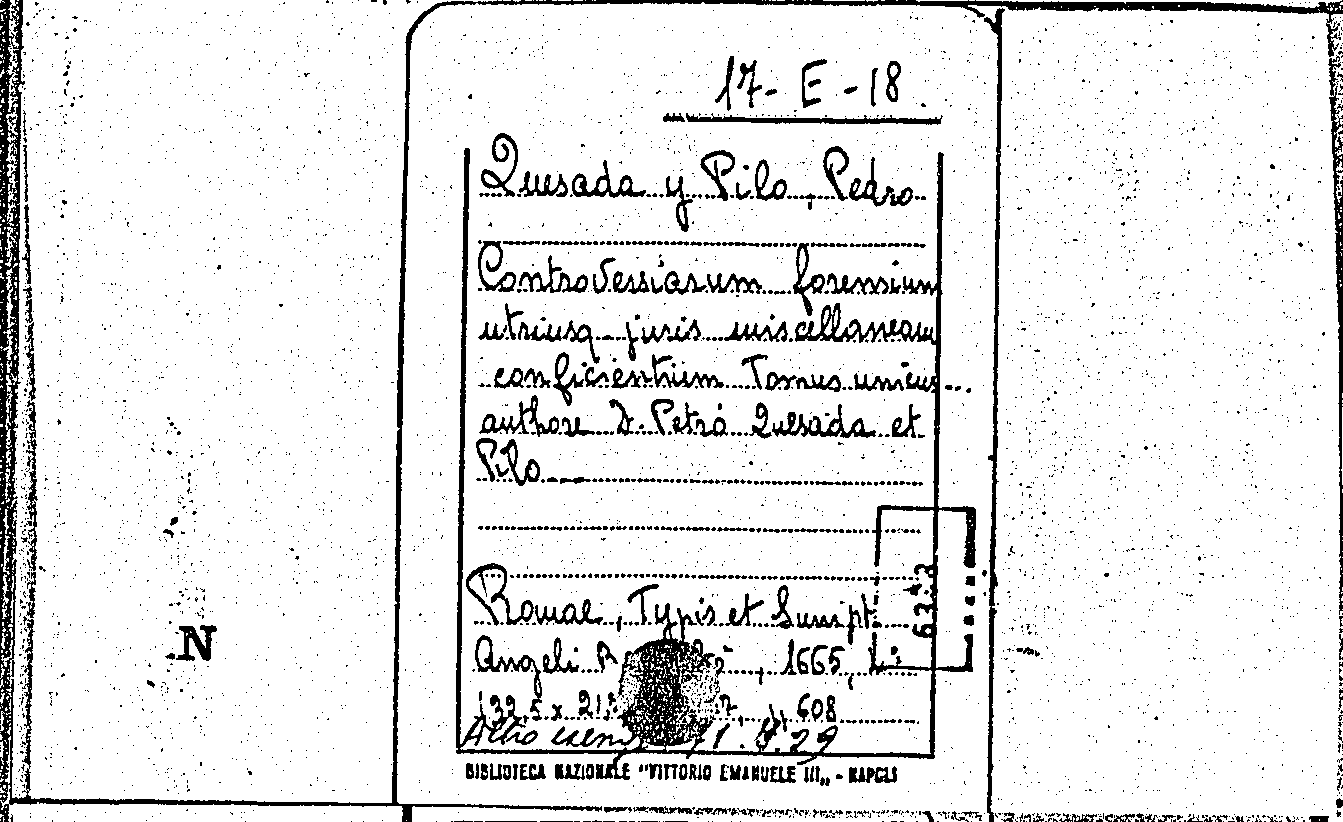 17-E-18.
Quesada y Pilo, Pedro
Controversiarum forensium
utriusq. juris miscellaneam
conficientium Tomus unicus...
authore D. Petro Quesada et
Pilo
Romae, Typis et Sumpt.
Angeli , 1665,
132,5 x 608
Altro 29
BIBLIOTECA NAZIONALE "VITTORIO EMANUELE III„ - NAPOLI
N